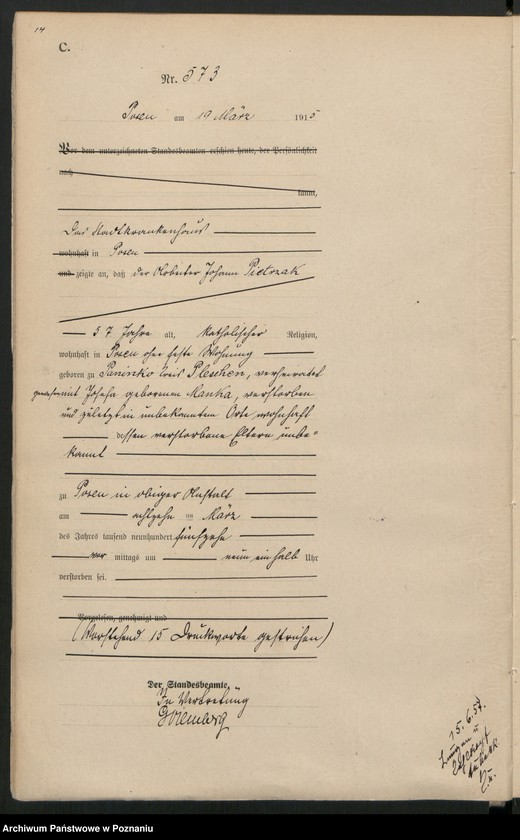 14
C.
Nr. 573
Posen am 19 März 1915
Vor dem unterzeichneten Standesbeamten erschien heute, der Persönlichkeit
nach
kannt,
Das Stadtkrankenhaus
wohnhaft in Posen
und zeigte an, daß der Arbeiter Johann Pietrzak
57 Jahre alt, katholischer Religion,
wohnhaft in Posen ohne feste Wohnung
geboren zu Kreis Pleschen, verheiratet
gewesen mit Josefa geborenen Manka, verstorben
und zuletzt in unbekanntem Orte wohnhaft
dessen verstorbene Eltern unbe=
kannt
zu Posen in obiger Anstalt
am achtzehn ten März
des Jahres tausend neunhundert fünfzehn
vor mittags um neun ein halb Uhr
verstorben sei.
Vorgelesen, genehmigt und
(Vorstehend 15 Druckworte gestrichen)
Der Standesbeamte.
In Vertretung
15. 6. 57.
Archiwum Państwowe w Poznaniu